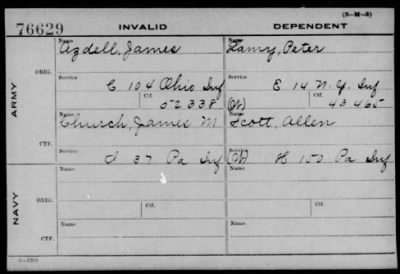 (3-M-3)
76629 INVALID DEPENDENT
ARMY
ORIG.
Name Name
Azdell, James Lamy, Peter
Service Service
C 104 Ohio Inf E 14 N.Y. Inf
Ctf. Ctf.
52338 (W) 43465
CTF.
Name Name
Church, James M Scott, Allen
Service Service
I 37 Pa Inf H 150 Pa Inf
NAVY
ORIG.
Name Name
Service Ctf. Service Ctf.
CTF.
Name Name
Service Service